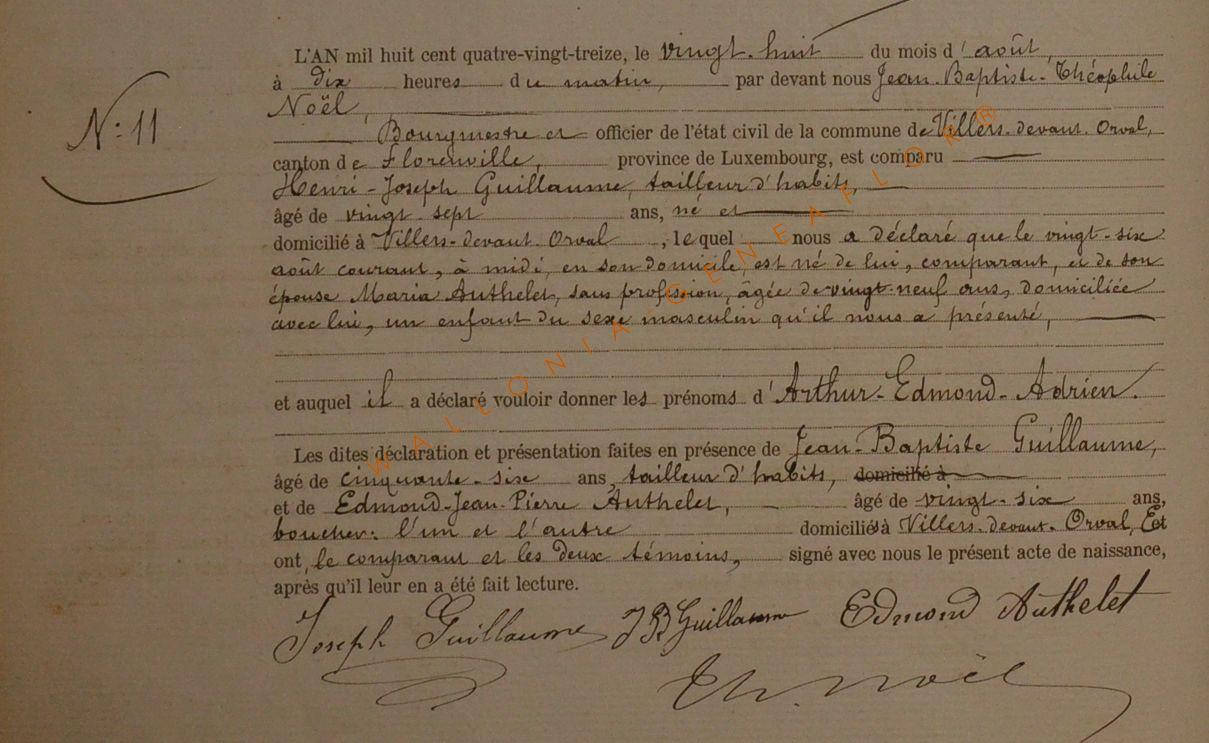 L'AN mil huit cent quatre-vingt-treize, le vingt-huit du mois d'août,
à dix heures du matin, par devant nous Jean-Baptiste-Théophile
Noël,
N° 11
Bourgmestre et officier de l'état civil de la commune de Villers-devant-Orval,
canton de Florenville, province de Luxembourg, est comparu
Henri-Joseph Guillaume, tailleur d'habits,
âgé de vingt-sept ans, né et
domicilié à Villers-devant-Orval, lequel nous a déclaré que le vingt-six
août courant, à midi, en son domicile, est né de lui, comparant, et de son
épouse Maria Authelet, sans profession, âgée de vingt-neuf ans, domiciliée
avec lui, un enfant du sexe masculin qu'il nous a présenté,
et auquel il a déclaré vouloir donner les prénoms d'Arthur-Edmond-Adrien.
Les dites déclaration et présentation faites en présence de Jean-Baptiste Guillaume,
âgé de cinquante-six ans, tailleur d'habits, domicilié à
et de Edmond-Jean-Pierre Authelet, âgé de vingt-six ans,
boucher: l'un et l'autre domiciliés à Villers-devant-Orval, Et
ont, le comparant et les deux témoins, signé avec nous le présent acte de naissance,
après qu'il leur en a été fait lecture.
Joseph Guillaume JB Guillaume Edmond Authelet
Th. Noël
WALLONIA GENEAFLOR®